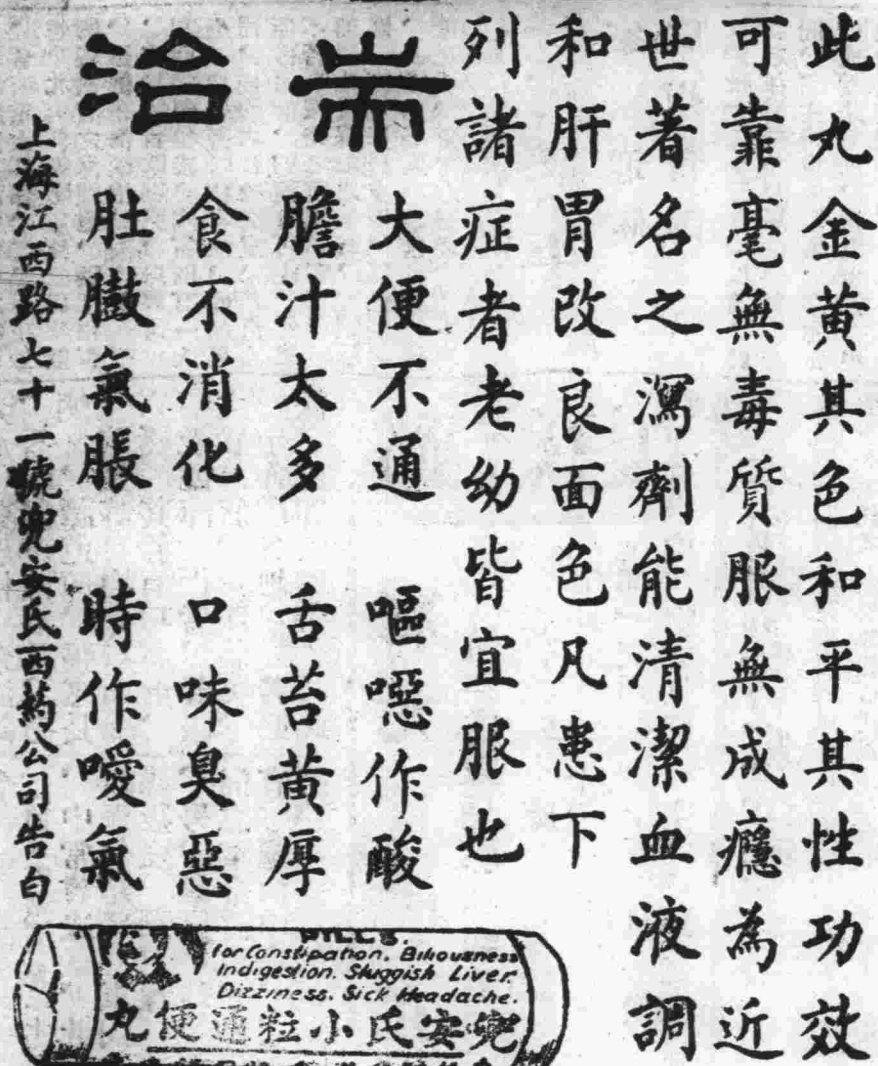 此丸金黄其色和平其性功效
可靠毫無毒質服無成癮為近
世著名之瀉劑能清潔血液調
和肝胃改良面色凡患下
列諸症者老幼皆宜服也
耑治
大便不通 嘔噁作酸
膽汁太多 舌苔黄厚
食不消化 口味臭惡
肚臌氣脹 時作噯氣
上海江西路七十一號兜安氏西葯公司告白
PILLS.
for Constipation. Biliousness
Indigestion. Sluggish Liver
Dizziness. Sick Headache.
兜安氏小粒通便丸